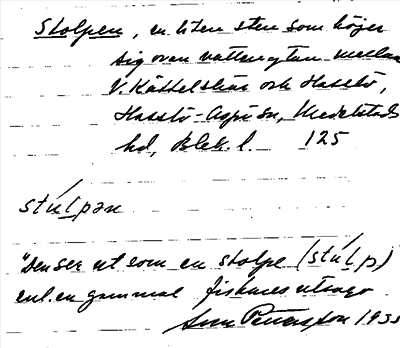 Stolpen, en liten sten som höjer
sig ovan vattenytan mellan
V. Kättelskär och Hasslö,
Hasslö-Aspö sn, Medelstads
hd, Blek. l. 125
stúlpən
"Den ser ut som en stolpe (stúlp)
enl. en gammal fiskares utsago
Pettersson 1933